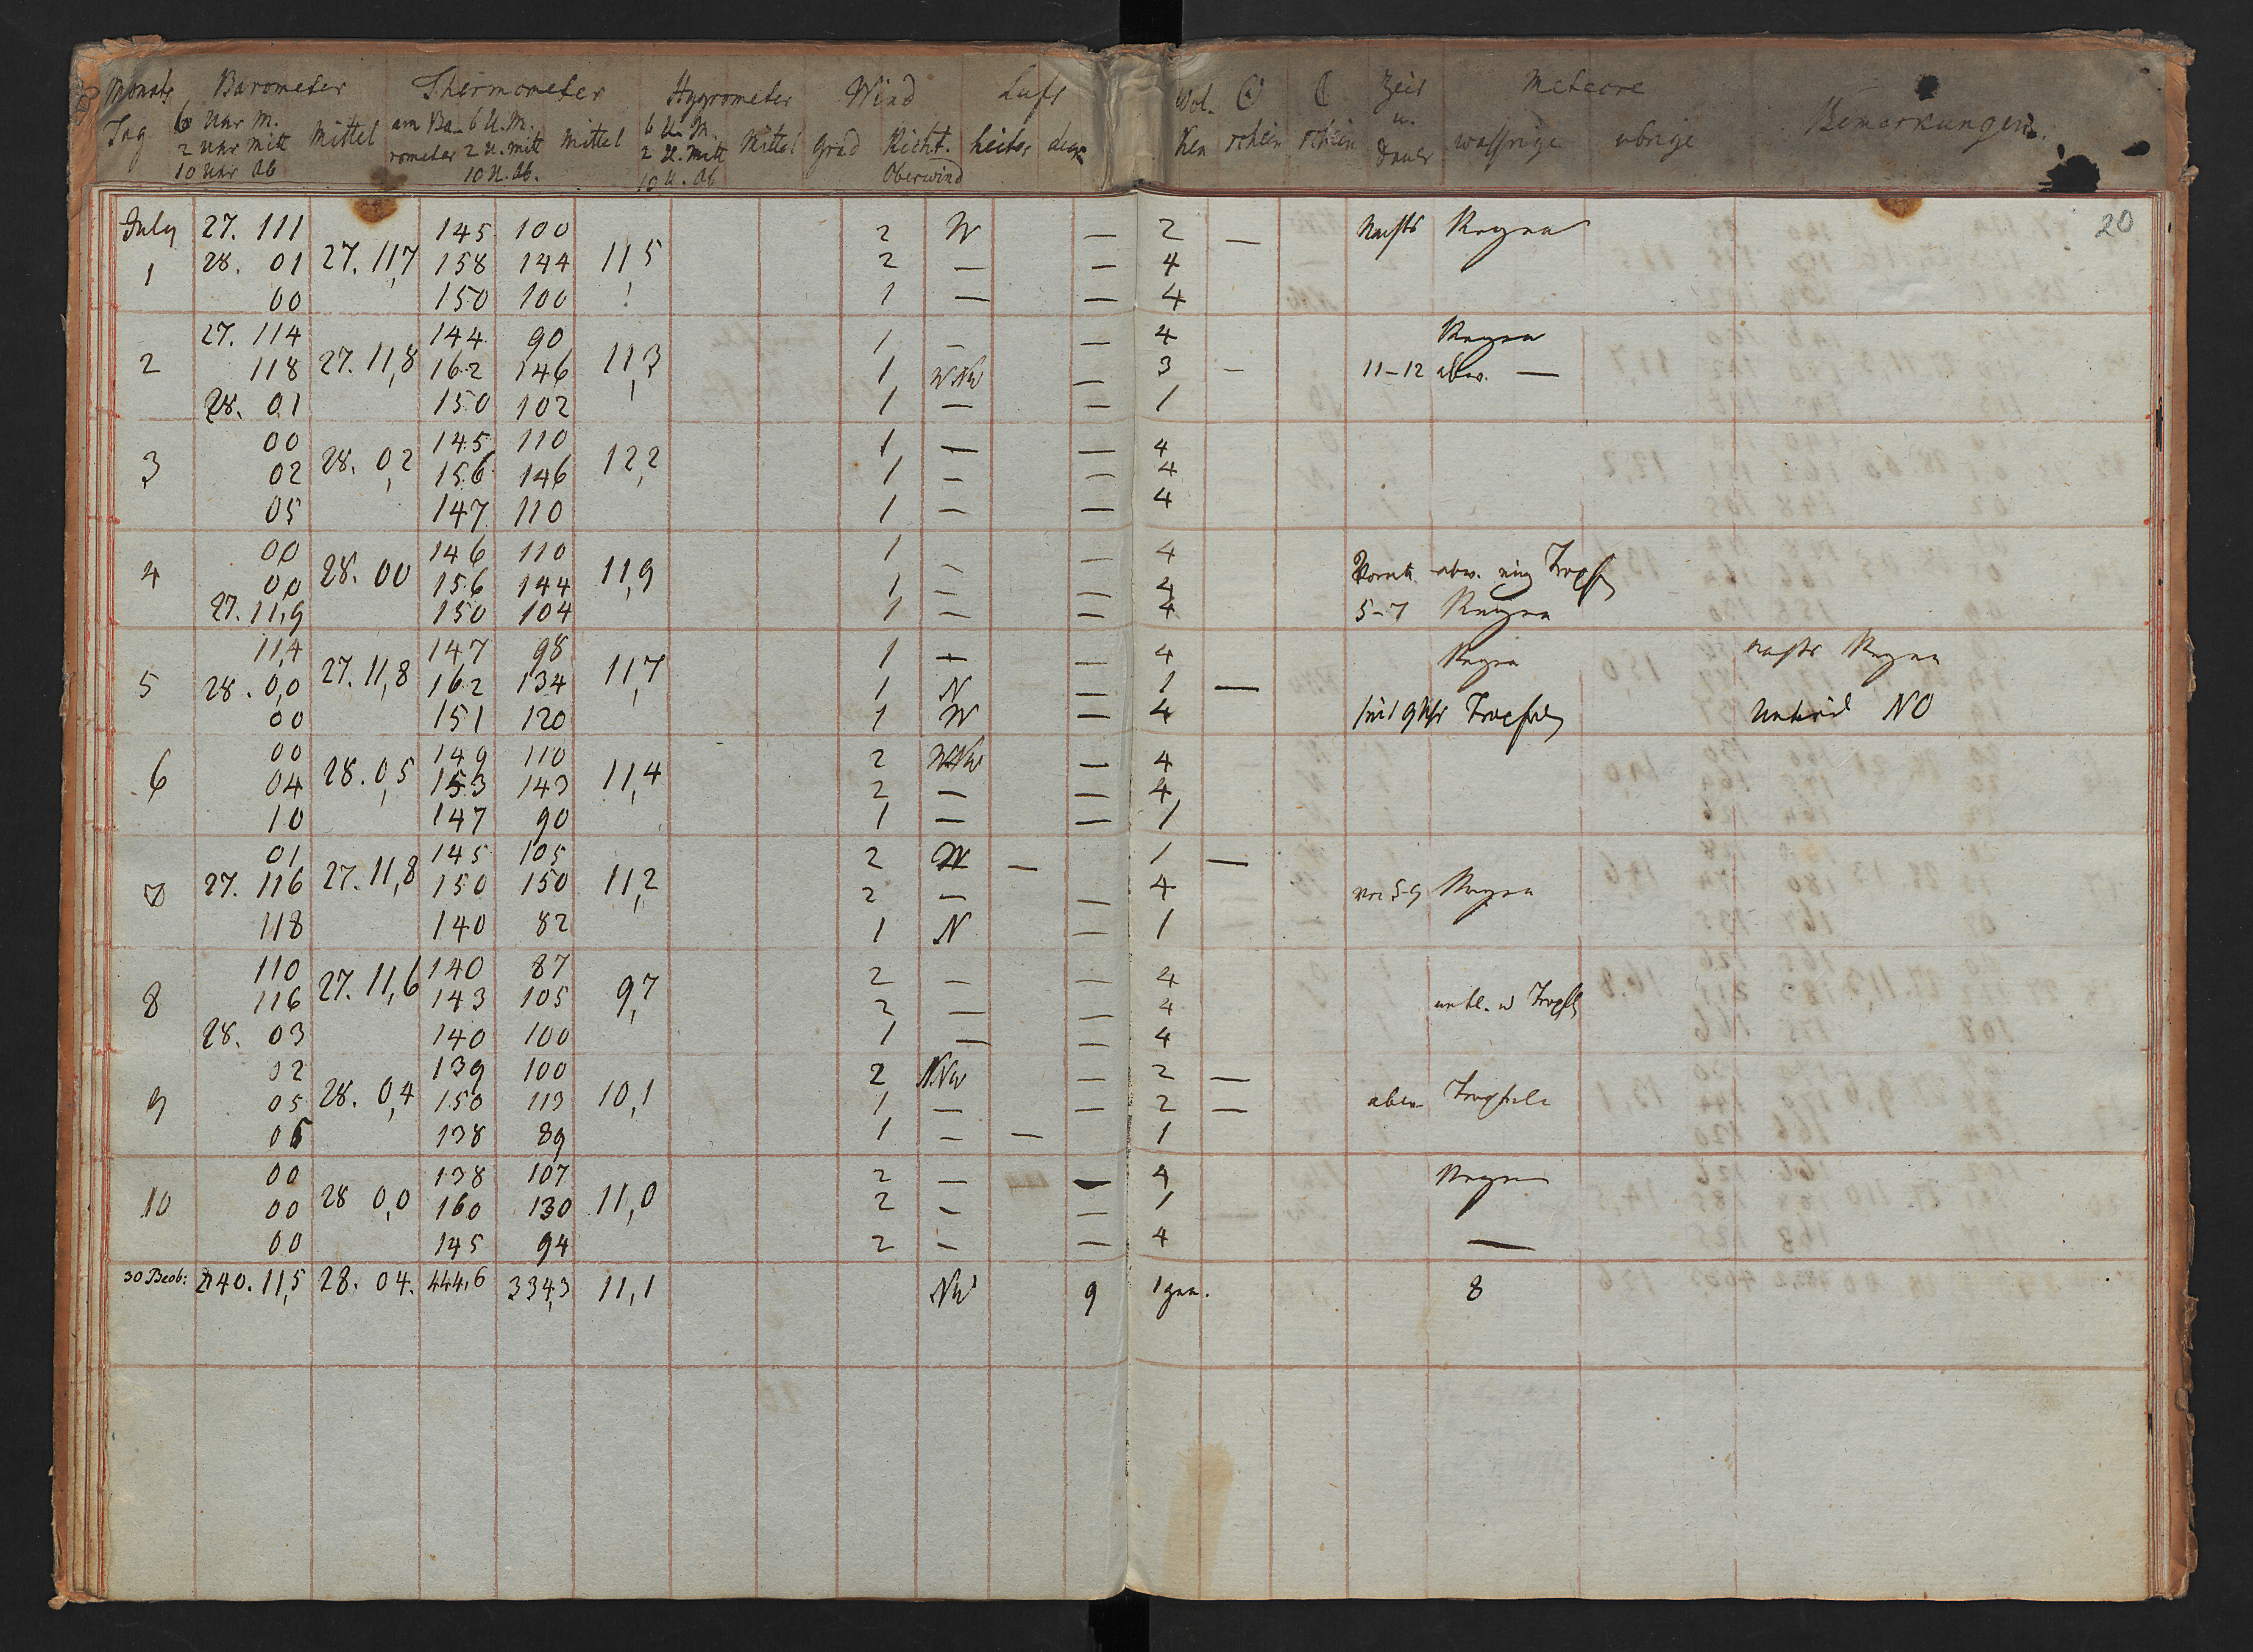 Monats Barometer Thermometer Hygrometer Wind Luft Wol. ☉ ☾ Zeit Meteore
Tag 6 Uhr M. Mittel am Ba- 6 U. M. Mittel 6 U. M. Mittel Grad Richt. heiter ken schein schein u. wassrige ubrige Bemerkungen.
2 Uhr Mitt rometer 2 U. mitt 2 U. Mitt Dauer
10 Uhr Ab 10 U. Ab. 10 U. Ab Oberwind
20
July 27. 111 145 100 2 W — 2 — Nachts Regen
1 28. 01 27. 11,7 158 144 11,5 2 — — 4
00 150 100 1 — — 4
27. 114 144 90 1 — — 4 Regen
2 118 27. 11,8 162 146 11,3 1 WNW — 3 — 11-12 abw. —
28. 01 150 102 1 — — 1
00 145 110 1 — — 4
3 02 28. 0,2 156 146 12,2 1 — — 4
05 147 110 1 — — 4
00 146 110 1 — — 4
4 00 28. 00 156 144 11,9 1 — — 4 abw.
27. 11,9 150 104 1 — — 4 5-7 Regen
11,4 147 98 1 — — 4 Regen Nachts Regen
5 28. 0,0 27. 11,8 162 134 11,7 1 N — 1 —
00 151 120 1 W — 4 9 Uhr Tropfen NO
00 149 110 2 WNW — 4
6 04 28. 0,5 153 143 11,4 2 — — 4
10 147 90 1 — — 1
01 145 105 2 W — 1 —
7 27. 116 27. 11,8 150 150 11,2 2 — — 4 5-9 Regen
118 140 82 1 N — 1
110 140 87 2 — — 4
8 116 27. 11,6 143 105 9,7 2 — — 4
28. 03 140 100 1 — — 4
02 139 100 2 NNW — 2 —
9 05 28. 0,4 150 113 10,1 1 — — 2 — Tropfen
138 89 1 — — 1
00 138 107 2 — — 4 Regen
10 00 28 0,0 160 130 11,0 2 — — 1
00 145 94 2 — — 4 —
30 Beob: 840. 11,5 28. 04. 444,6 334,3 11,1 NW 9 8